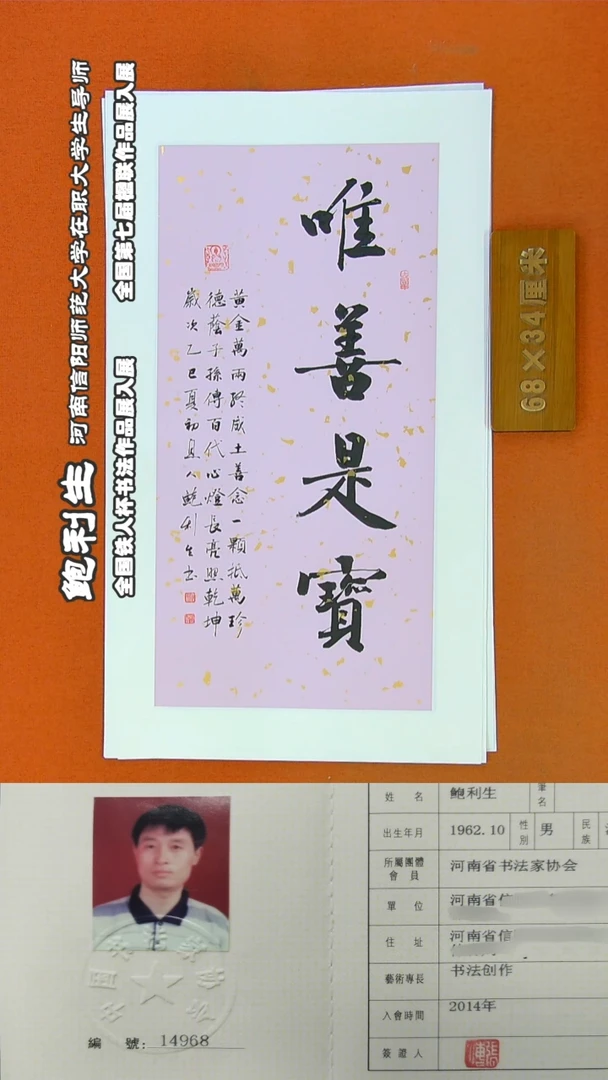 鲍利生 河南信阳师范大学在职大学生导师
全国铁人杯书法作品展入展 全国第七届楹联作品展入展
唯善是寶
黃金萬兩終成土善念一顆抵萬珍
德蔭子孫傳百代心燈長亮照乾坤
歲次乙巳夏初人鮑利生书
68×34厘米
姓名 鲍利生 筆名
出生年月 1962.10 性別 男 民族
所屬團體會員 河南省书法家协会
單位 河南省信
住址 河南省信
藝術專長 书法创作
入會時間 2014年
簽證人
編號: 14968